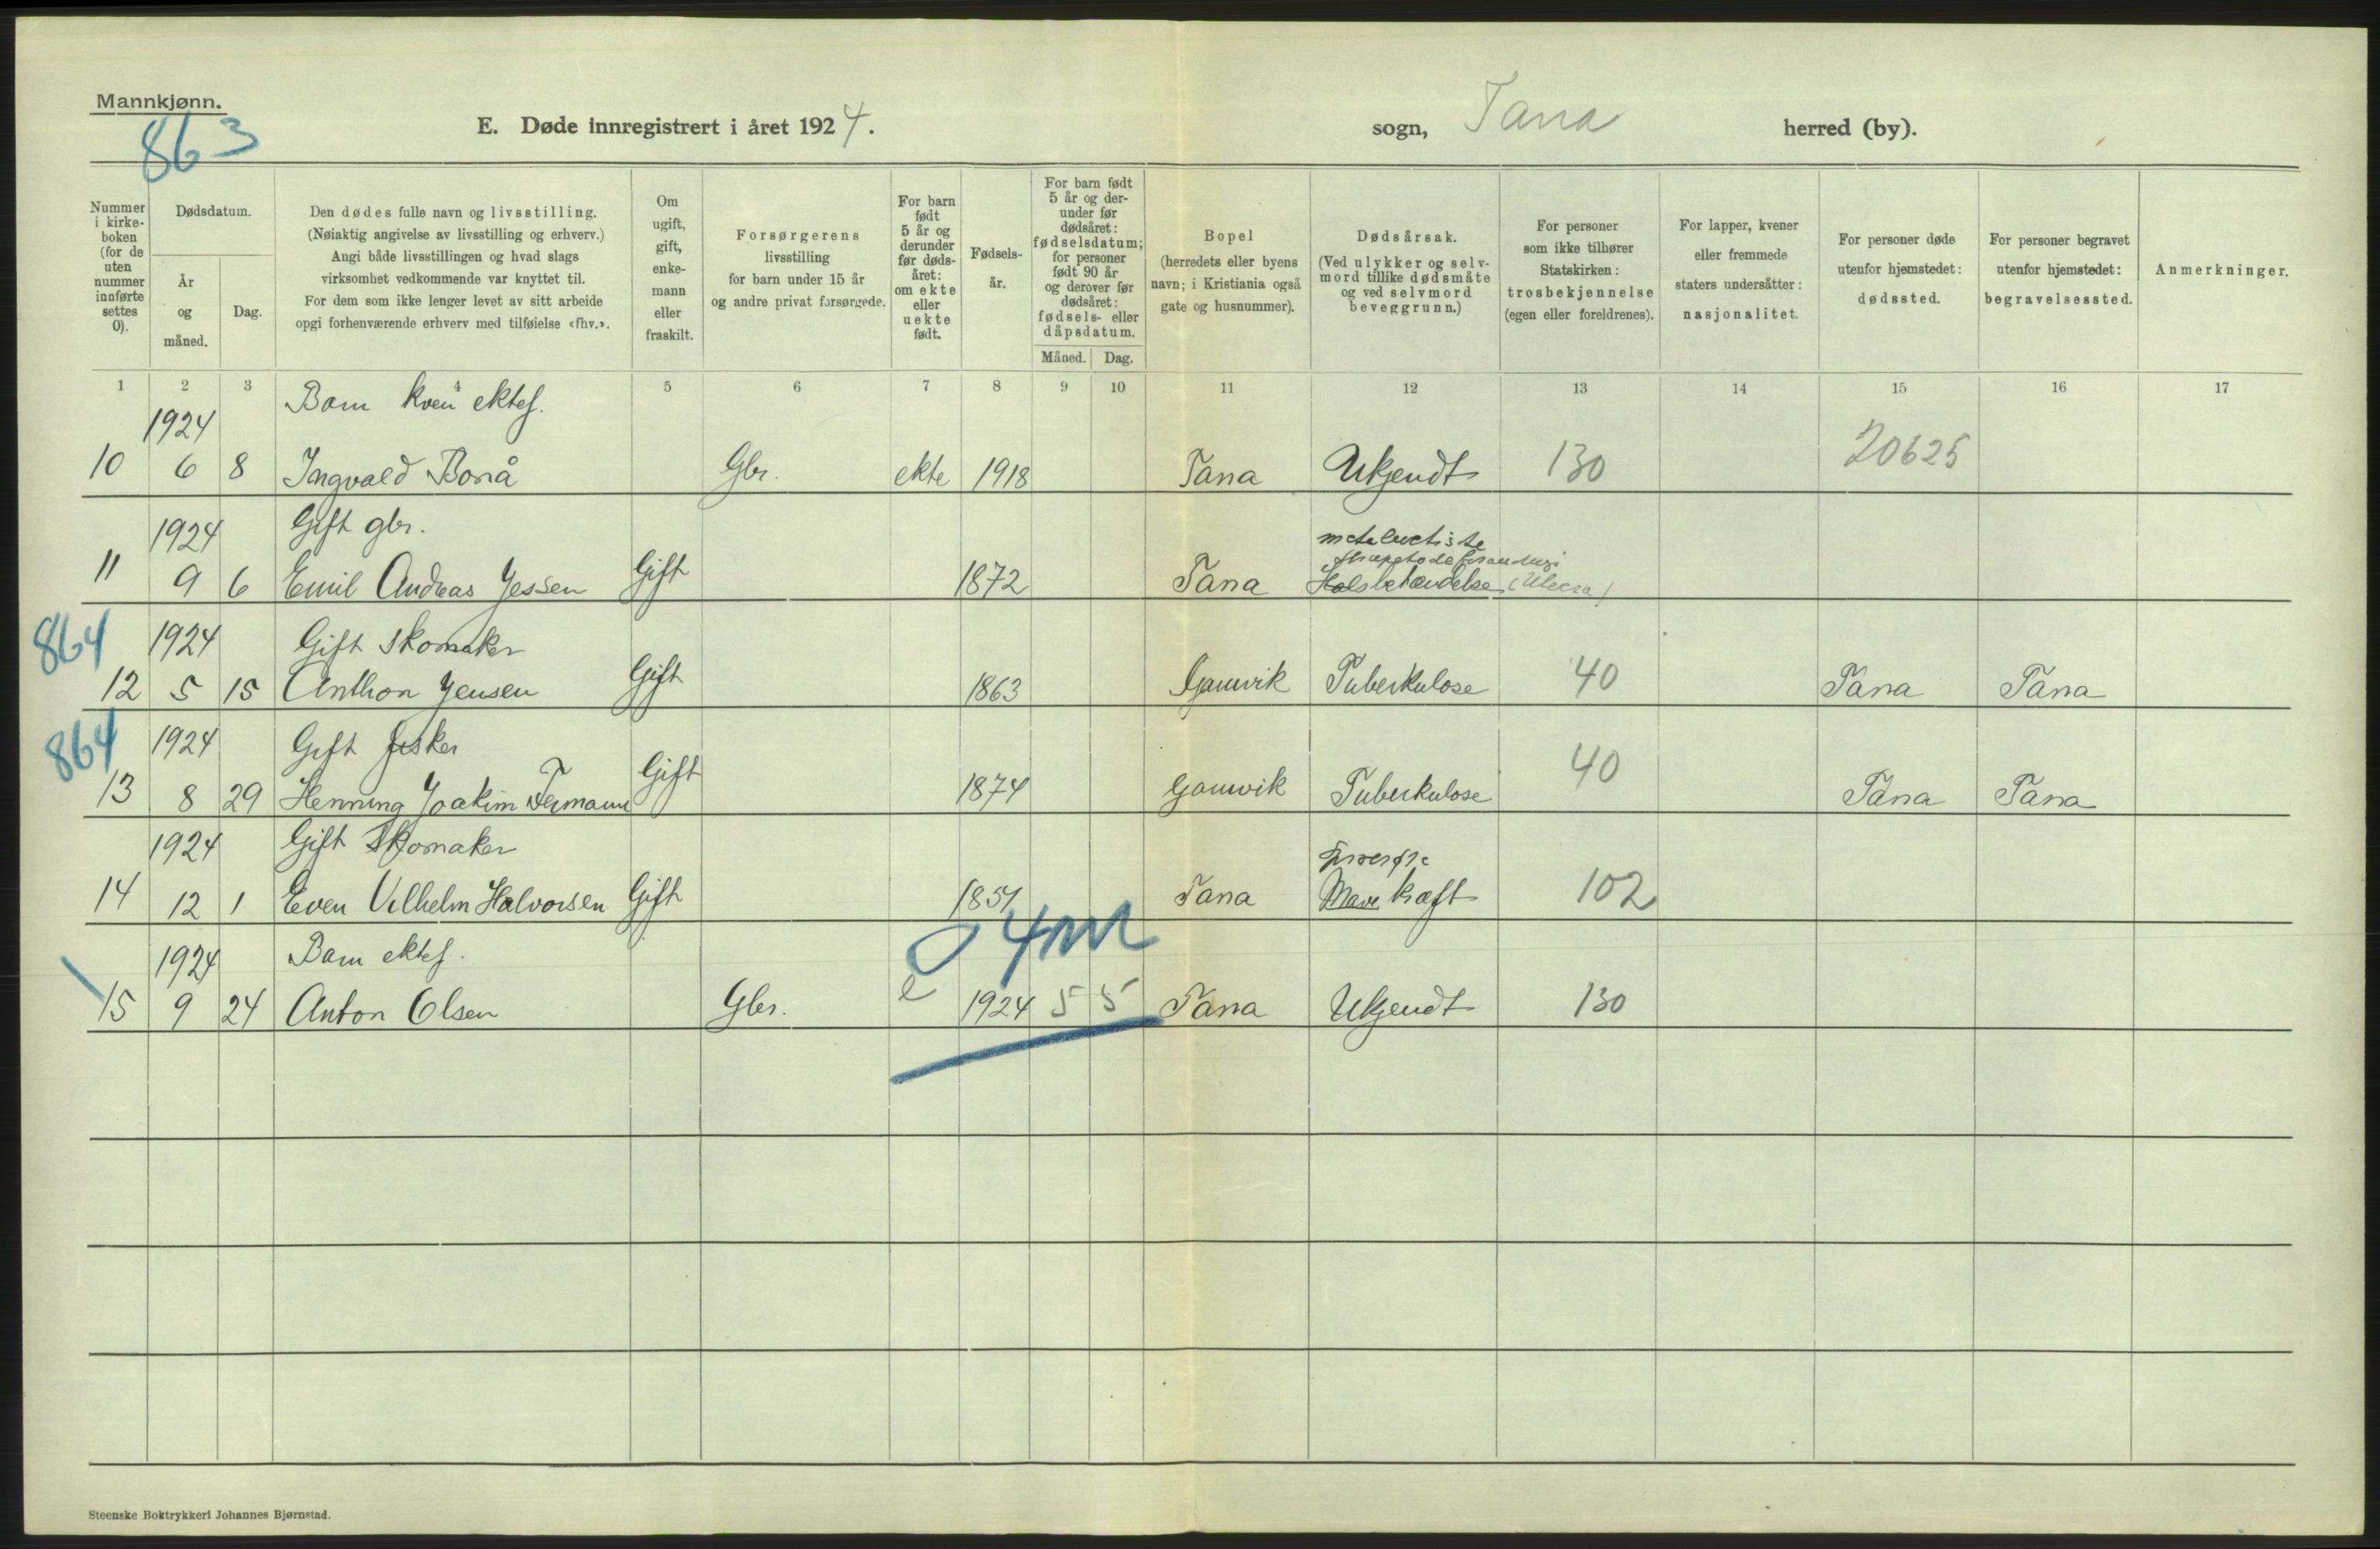 Mannkjønn.
863
E. Døde innregistrert i året 1924.
sogn, Tana herred (by).
Nummer i kirke-boken (for de uten nummer innførte settes 0).
Dødsdatum.
År og måned.
Dag.
Den dødes fulle navn og livsstilling.
(Nøiaktig angivelse av livsstilling og erhverv.)
Angi både livsstillingen og hvad slags
virksomhet vedkommende var knyttet til.
For dem som ikke lenger levet av sitt arbeide
opgi forhenværende erhverv med tilføielse «fhv.».
Om ugift, gift, enke-mann eller fraskilt.
Forsørgerens
livsstilling
for barn under 15 år
og andre privat forsørgede.
For barn født 5 år og derunder før døds-året: om ekte eller uekte født.
Fødsels-år.
For barn født 5 år og der-under før dødsåret: fødselsdatum; for personer født 90 år og derover før dødsåret: fødsels- eller dåpsdatum.
Måned. Dag.
Bopel
(herredets eller byens
navn; i Kristiania også
gate og husnummer).
Dødsårsak.
(Ved ulykker og selv-
mord tillike dødsmåte
og ved selvmord
beveggrunn.)
For personer
som ikke tilhører
Statskirken:
trosbekjennelse
(egen eller foreldrenes).
For lapper, kvener
eller fremmede
staters undersåtter:
nasjonalitet.
For personer døde
utenfor hjemstedet:
dødssted.
For personer begravet
utenfor hjemstedet:
begravelsessted.
Anmerkninger.
1 2 3 4 5 6 7 8 9 10 11 12 13 14 15 16 17
1924 Barn kven ektef.
10 6 8 Ingvald Boņå Gbr. ekte 1918 Tana Ukjendt 130 20625
1924 Gift gbr.
11 9 6 Emil Andreas Jessen Gift 1872 Tana
864 1924 Gift skomaker
12 5 15 Anthon Jensen Gift 1863 Gamvik Tuberkulose 40 Tana Tana
864 1924 Gift fisker
13 8 29 Henning Joakim Gift 1874 Gamvik Tuberkulose 40 Tana Tana
1924 Gift Skomaker
14 12 1 Even Vilhelm Halvorsen Gift Tana Mave kræft 102
1924 Barn ektef.
4m
15 9 24 Anton Olsen Gbr. e 1924 5 5 Tana Ukjendt 130
Steenske Boktrykkeri Johannes Bjørnstad.